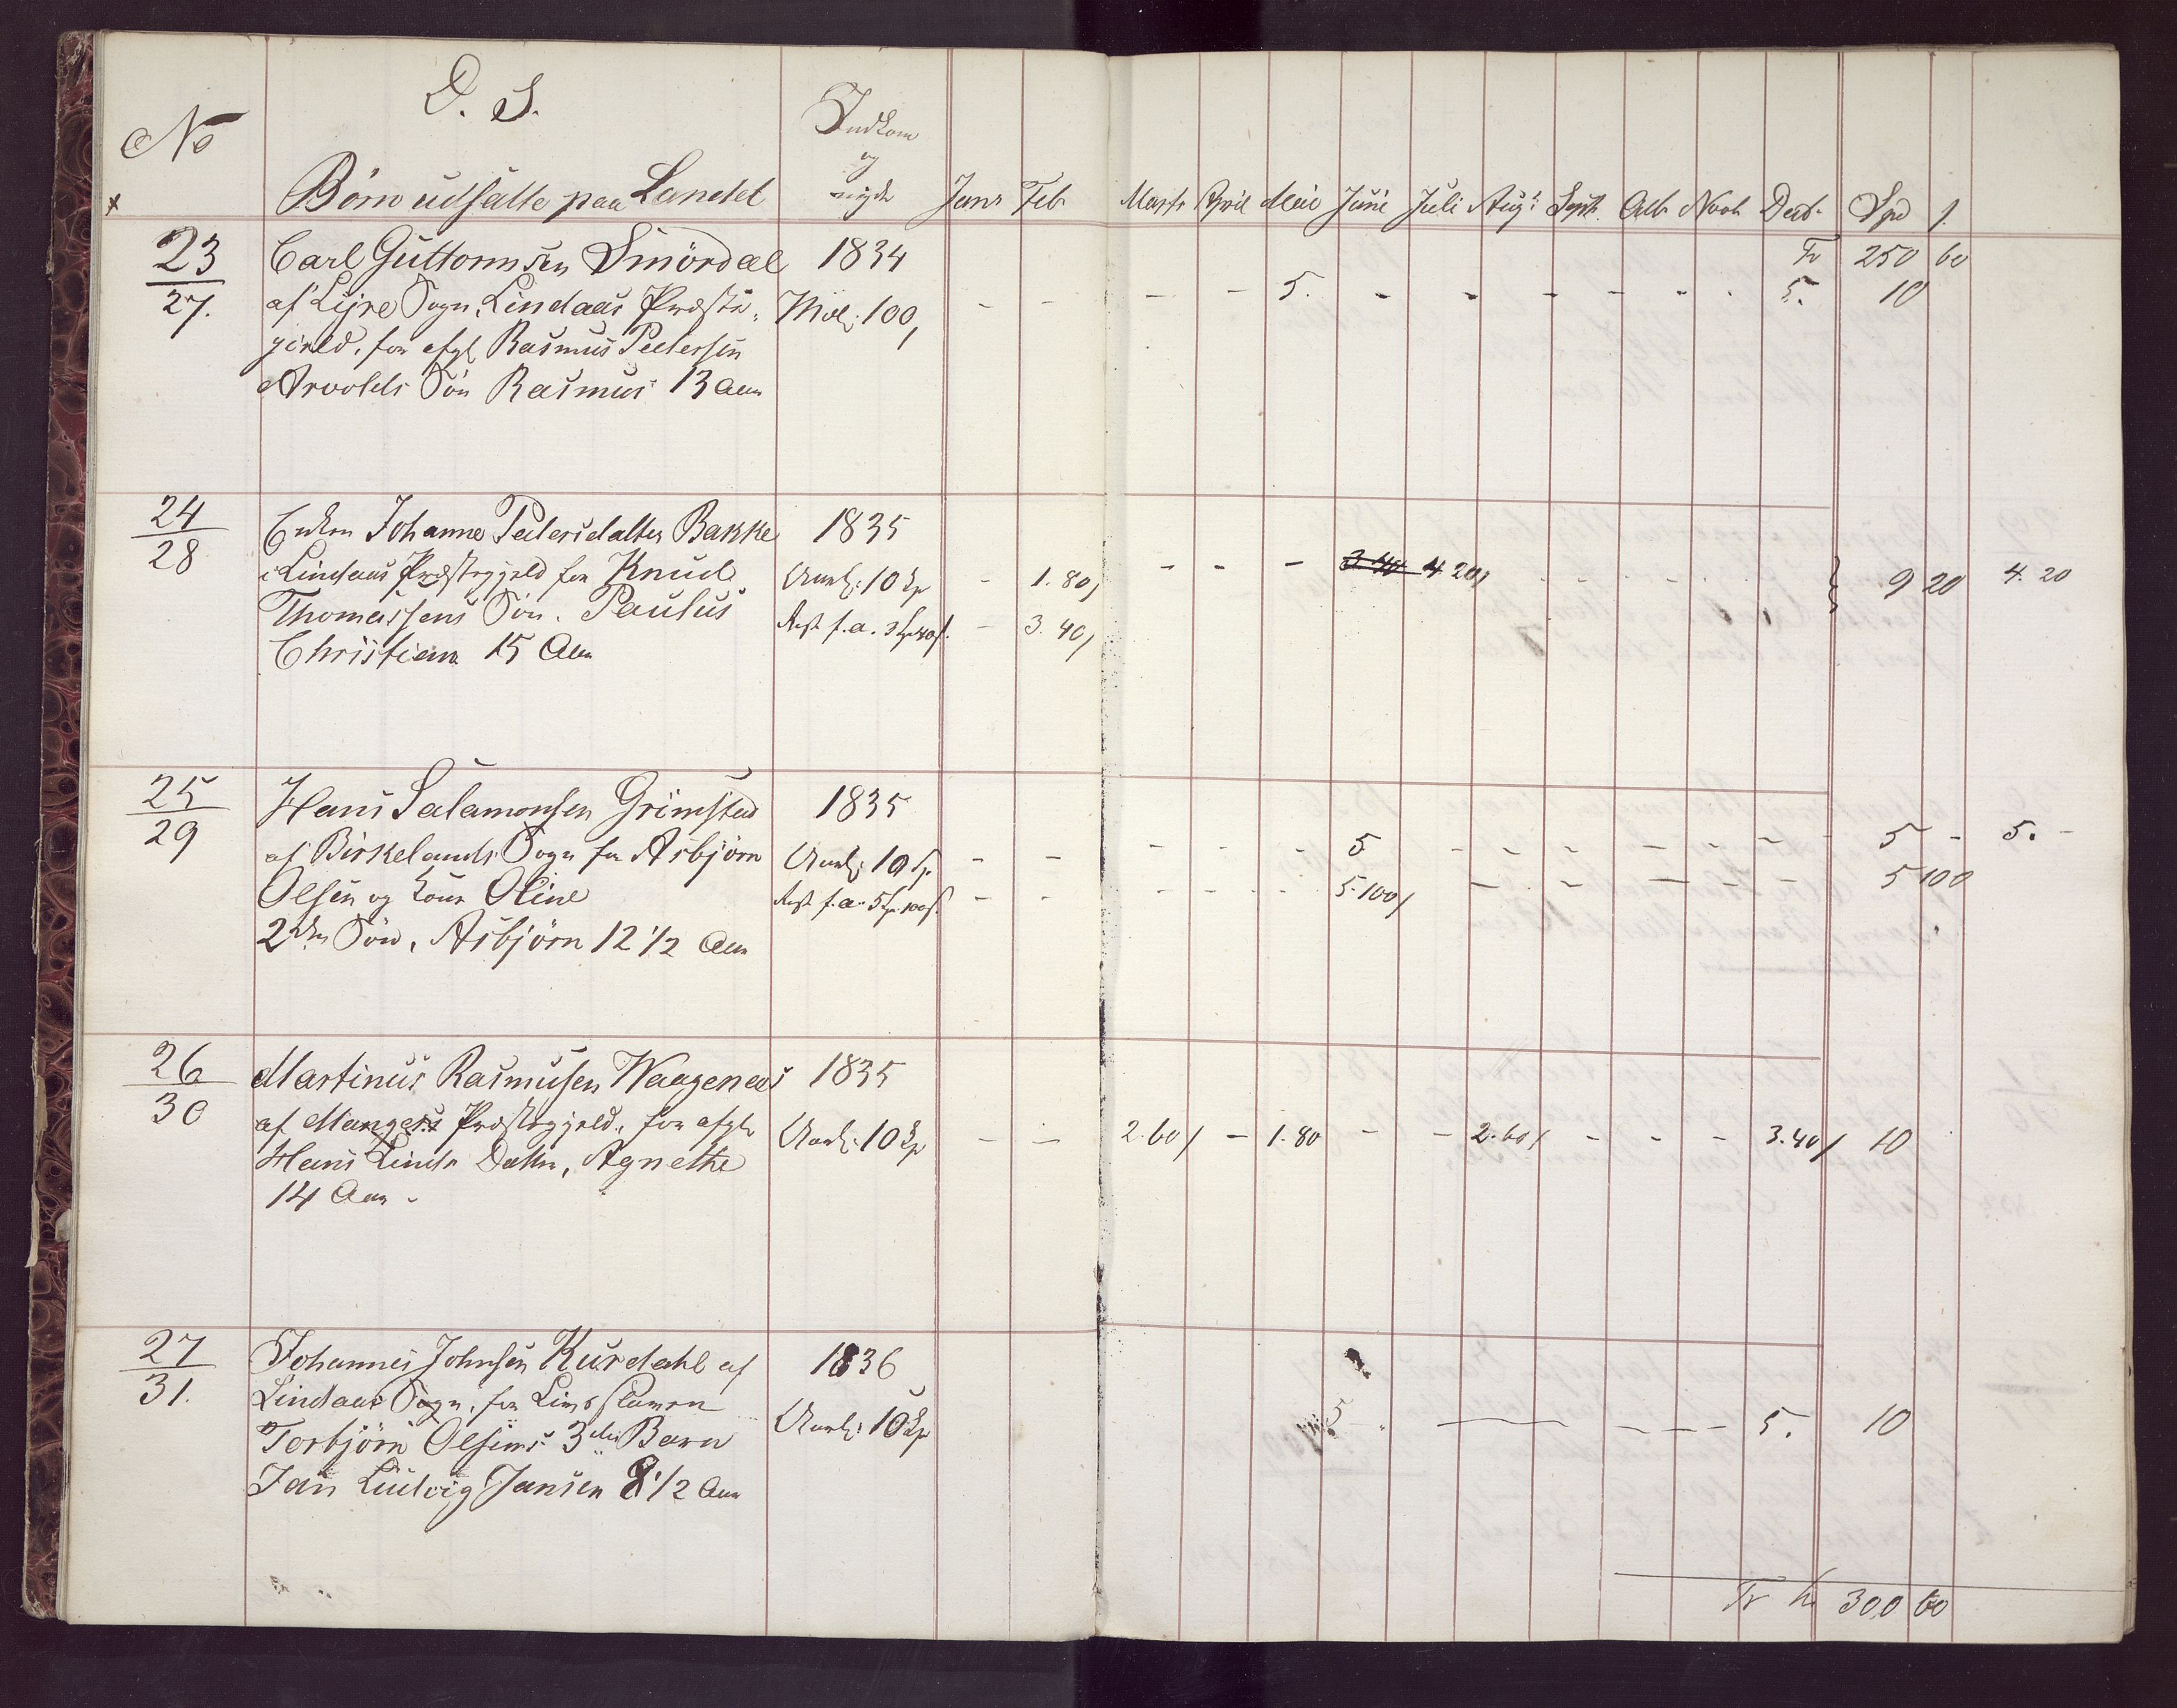 D. S.
No Indkom og nyder
x Børn udsatte paa Landet Janr Feb Marts April Mai Juni Juli Augt Sept. Octb Novb Decb. Spd s.
23 Carl Guttormsen Smördal 1834 Tr 250 60
27. af Lyre Sogn, Lindaas Præste- Mdl: 100, - - - - 5. - - - - - . 5. 10
gjeld, for afgl Rasmus Pedersen
Arvolds Sön Rasmus 13 Aar
24 Enken Johanne Pedersdatter Bakke 1835
28 i Lindaas Præstegjeld for Knud Aarl: 10 Sp - 1.80, - - - 3.40 4.20, 9 20 4.20
Thomassens Sön. Paulus Rest f.a. 3 Sp 40 s. - 3.40,
Christian 15 Aar
25 Hans Salamonsen Grimstad 1835
29 af Birkelands Sogn for Asbjörn Aarl: 10 Sp - - - - - 5 - - - - - - 5 - 5. -
Olsen og Kone Oline Rest f.a. 5 Sp. 100 s. - - - - - - 5.100, - - - - - - 5 100
2den Sön, Asbjörn 12 1/2 Aar
26 Martinus Rasmusen Waagenæs 1835
30 af Mangers Præstegjeld, for afgl Aarl: 10 Sp - - 2.60, - 1.80 - - 2.60, - - - 3.40, 10
Hans Linds Datter, Agnethe
14 Aar.
27 Johannes Johnsen Kurdahl af 1836
31. Lindaas Sogn, for
Torbjörn Olsens 3die Barn Aarl: 10 Sp 5 - - - - 5. 10
Jan Ludvig Jansen 8 1/2 Aar
Tr 300 60